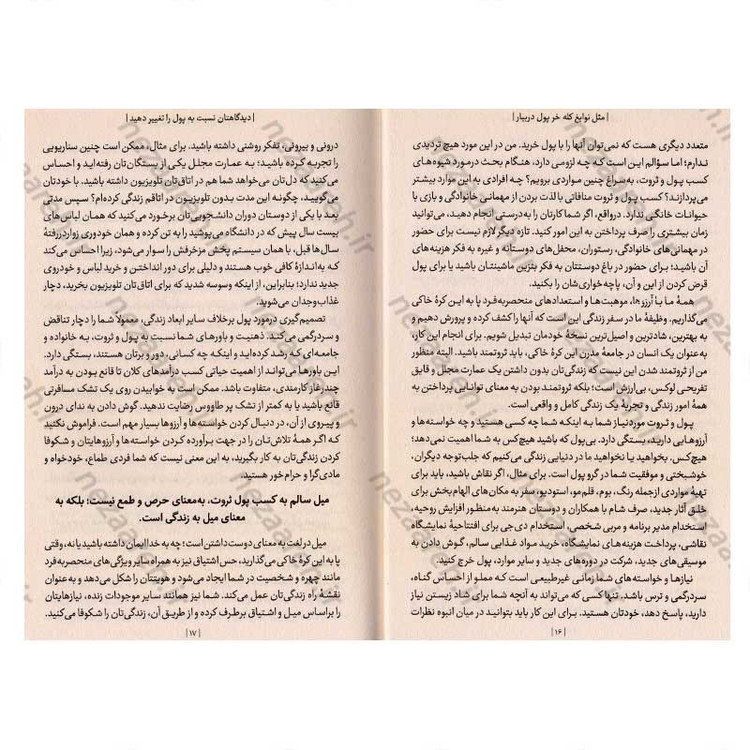 | مثل نوابغ کله خر پول دربیار |
متعدد دیگری هست که نمی‌توان آنها را با پول خرید. من در این مورد هیچ تردیدی
ندارم؛ اما سؤالم این است که چه لزومی دارد، هنگام بحث درمورد شیوه‌های
کسب پول و ثروت، به‌سراغ چنین مواردی برویم؟ چه افرادی به این موارد بیشتر
می‌پردازند؟ کسب پول و ثروت منافاتی با لذت بردن از مهمانی خانوادگی و بازی با
حیوانات خانگی ندارد. درواقع، اگر شما کارتان را به‌درستی انجام دهید، می‌توانید
زمان بیشتری را صرف پرداختن به این امور کنید. تازه دیگر لازم نیست برای حضور
در مهمانی‌های خانوادگی، رستوران، محفل‌های دوستانه و غیره به فکر هزینه‌های
آن باشید؛ برای حضور در باغ دوستتان به فکر بنزین ماشینتان باشید یا برای پول
قرض کردن از این و آن، پاچه‌خواری‌شان را بکنید.
همهٔ ما با آرزوها، موهبت‌ها و استعدادهای منحصربه‌فرد پا به این کرهٔ خاکی
می‌گذاریم. وظیفهٔ ما در سفر زندگی این است که آنها را کشف کرده و پرورش دهیم و
به بهترین، شادترین و اصیل‌ترین نسخهٔ خودمان تبدیل شویم. برای انجام این کار،
به‌عنوان یک انسان در جامعهٔ مدرن این کرهٔ خاکی، باید ثروتمند باشید. البته منظور
من از ثروتمند شدن این نیست که زندگی‌تان بدون داشتن یک عمارت مجلل و قایق
تفریحی لوکس، بی‌ارزش است؛ بلکه ثروتمند بودن به معنای توانایی پرداختن به
همهٔ امور زندگی و تجربهٔ یک زندگی کامل و واقعی است.
پول و ثروت موردنیاز شما به اینکه شما چه کسی هستید و چه خواسته‌ها و
آرزوهایی دارید، بستگی دارد. بی‌پول که باشید هیچ‌کس به شما اهمیت نمی‌دهد؛
هیچ‌کس. بخواهید یا نخواهید ما در دنیایی زندگی می‌کنیم که جلب‌توجه دیگران،
خوشبختی و موفقیت شما در گرو پول است. برای مثال، اگر نقاش باشید، باید برای
تهیهٔ مواردی ازجمله رنگ، بوم، قلم‌مو، استودیو، سفر به مکان‌های الهام‌بخش برای
خلق آثار جدید، صرف شام با همکاران و دوستان هنرمند به‌منظور افزایش روحیه،
استخدام مدیر برنامه و مربی شخصی، استخدام دی‌جی برای افتتاحیهٔ نمایشگاه
نقاشی، پرداخت هزینه‌های نمایشگاه، خرید مواد غذایی سالم، گوش دادن به
موسیقی‌های جدید، شرکت در دوره‌های جدید و سایر موارد، پول خرج کنید.
نیازها و خواسته‌های شما زمانی غیرطبیعی است که مملو از احساس گناه،
سردرگمی و ترس باشد. تنها کسی که می‌تواند به آنچه شما برای شاد زیستن نیاز
دارید، پاسخ دهد، خودتان هستید. برای این کار باید بتوانید در میان انبوه نظرات
| ۱۶ |
| دیدگاهتان نسبت به پول را تغییر دهید |
درونی و بیرونی، تفکر روشنی داشته باشید. برای مثال، ممکن است چنین سناریویی
را تجربه کرده باشید؛ به عمارت مجلل یکی از بستگان‌تان رفته‌اید و احساس
می‌کنید که دل‌تان می‌خواهد شما هم در اتاق‌تان تلویزیون داشته باشید. با خودتان
می‌گویید، چگونه این مدت بدون تلویزیون در اتاقم زندگی کرده‌ام؟ سپس مدتی
بعد با یکی از دوستان دوران دانشجویی‌تان برخورد می‌کنید که همان لباس‌های
بیست سال پیش که در دانشگاه می‌پوشید را به تن کرده و همان خودروی زواردررفتهٔ
سال‌ها قبل، با همان سیستم پخش مزخرفش را سوار می‌شود، زیرا احساس می‌کند
که به‌اندازهٔ کافی خوب هستند و دلیلی برای دور انداختن و خرید لباس و خودروی
جدید ندارد؛ بنابراین، از اینکه وسوسه شدید که برای اتاق‌تان تلویزیون بخرید، دچار
عذاب‌وجدان می‌شوید.
تصمیم‌گیری درمورد پول برخلاف سایر ابعاد زندگی، معمولاً شما را دچار تناقض
و سردرگمی می‌کند. ذهنیت و باورهای شما نسبت به پول و ثروت، به خانواده و
جامعه‌ای که رشد کرده‌اید و اینکه چه کسانی، دور و برتان هستند، بستگی دارد.
این باورها می‌تواند از اهمیت حیاتی کسب درآمدهای کلان تا قانع بودن به درآمد
چندرغاز کارمندی، متفاوت باشد. ممکن است به خوابیدن روی یک تشک مسافرتی
قانع باشید یا به کمتر از تشک پر طاووس رضایت ندهید. گوش دادن به ندای درون
و پیروی از آن، در دنبال کردن خواسته‌ها و آرزوها بسیار مهم است. فراموش نکنید
که اگر همهٔ تلاش‌تان را در جهت برآورده کردن خواسته‌ها و آرزوهایتان و شکوفا
کردن زندگی‌تان به کار بگیرید، به این معنی نیست که شما فردی طماع، خودخواه و
مادی‌گرا و حرام خور هستید.
میل سالم به کسب پول ثروت، به‌معنای حرص و طمع نیست؛ بلکه به
معنای میل به زندگی است.
میل در لغت به معنای دوست داشتن است؛ چه به خدا ایمان داشته باشید یا نه، وقتی
پا به این کرهٔ خاکی می‌گذارید، حس اشتیاق نیز به همراه سایر ویژگی‌های منحصربه‌فرد
مانند چهره و شخصیت در شما ایجاد می‌شود و هویتتان را شکل می‌دهد و به‌عنوان
نقشهٔ راه زندگی‌تان عمل می‌کند. شما نیز همانند سایر موجودات زنده، نیازهایتان
را براساس میل و اشتیاق برطرف کرده و از طریق آن، زندگی‌تان را شکوفا می‌کنید.
| ۱۷ |